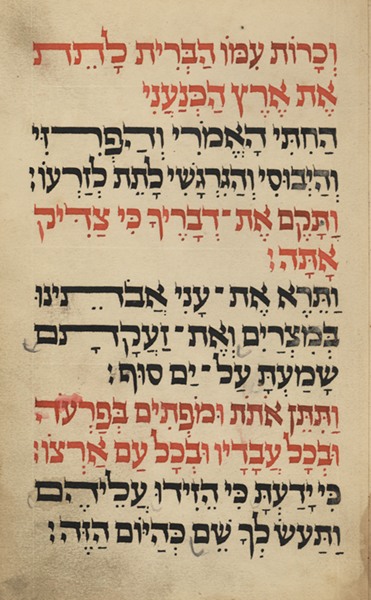 וְכָרוֹת עִמּוֹ הַבְּרִית לָתֵת
אֶת אֶרֶץ הַכְּנַעֲנִי
הַחִתִּי הָאֱמֹרִי וְהַפְּרִזִּי
וְהַיְבוּסִי וְהַגִּרְגָּשִׁי לָתֵת לְזַרְעוֹ׃
וַתָּקֶם אֶת־דְּבָרֶיךָ כִּי צַדִּיק
אָתָּה׃
וַתֵּרֶא אֶת־עֳנִי אֲבֹתֵינוּ
בְּמִצְרַיִם וְאֶת־זַעֲקָתָם
שָׁמַעְתָּ עַל־יַם סוּף׃
וַתִּתֵּן אֹתֹת וּמֹפְתִים בְּפַרְעֹה
וּבְכָל עֲבָדָיו וּבְכָל עַם אַרְצוֹ׃
כִּי יָדַעְתָּ כִּי הֵזִידוּ עֲלֵיהֶם
וַתַּעַשׂ לְךָ שֵׁם כְּהַיּוֹם הַזֶּה׃